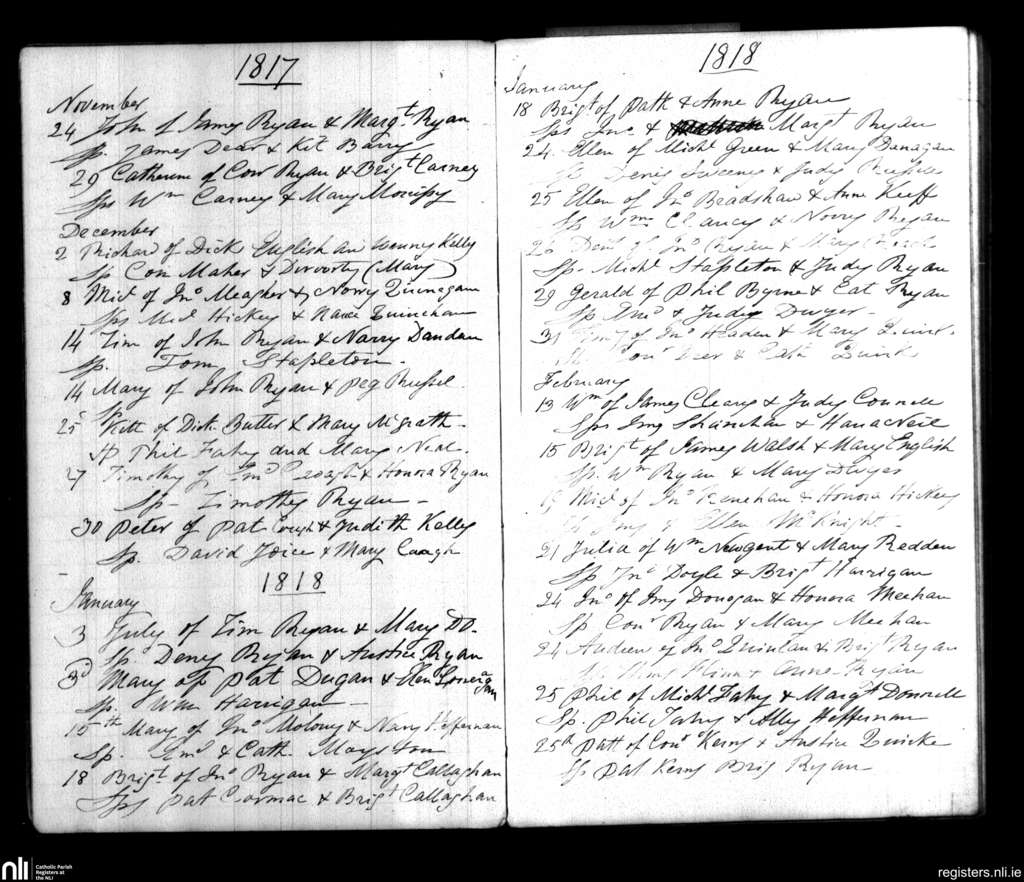 1817
November
24 John of James Ryan & Margt Ryan
Sp. James Dear & Kit Barry
29 Catherine of Conr Ryan & Brigt Carney
Sps Wm Carney & Mary Morissy
December
2 Richard of Dick English an Wenny Kelly
Sp Con Maher & (Mary)
8 Micl of Jno Meagher & Norry Quinegan
Sps Micl Hickey &
14 Tim of John Ryan & Norry Dandan
Sp. Tom Stapleton.
14 Mary of John Ryan & Peg Russel.
Sp
25 Kitt of Dick Butler & Mary McGrath
Sp Phil Fahy and Mary Neal.
27 Timothy of & Honora Ryan
Sp - Timothy Ryan -
30 Peter of Pat & Judith Kelly
Sp. David Joice & Mary
1818
January
3 July of Tim Ryan & Mary Do.
Sp. Deny Ryan & Austice Ryan
3d Mary of Pat Dugan & Ellen Lonergan
Sp. Wm Harigan
15th Mary of Jno Molony & Nany Heffernan
Sp. & Cath
18 Brigt of Jno Ryan & Margt Callaghan
Sps Pat Cormac & Brigt Callaghan
1818
January
18 Brigt of Patk & Anne Ryan
Sps Jno & Margt Ryan
24 Ellen of Michl Green & Mary Danagan
Denis Sweeney & Judy
25 Ellen of Jno Bradshaw & Anne Keeff
Sps Wm Clancy & Norry Ryan
26 of Jno Ryan & Mary
Sp. Michl Stapleton & Judy Ryan
29 Gerald of Phil Byrne & Cat Ryan
Sp & Judy Dwyer.
31 of Jno Headen & Mary Quirk.
Conr & Cath Quirk
February
13 Wm of James Cleary & Judy Connell
Sps Jmy & Hana Neil
15 Brigt of James Walsh & Mary English
Sp. Wm Ryan & Mary Dwyer
19 Micl of Jno Renehan & Honora Hickey
Jmy & Ellen McKnight
21 Julia of Wm Newgent & Mary Redden
Sp Jno Doyle & Brigt Harrigan
24 Jno of Jmy Donogan & Honora Meehan
Sp Conr Ryan & Mary Meehan
24 Andrew of Jno Quinlan & Brigt Ryan
Anne Ryan
25 Phil of Michl Fahy & Margt Donnell
Sp. Phil Fahy & Ally Heffernan
25th Patt of Conr Kerny & Austice Quirke
Sp Pat Kerny Brig Ryan
nli
Catholic Parish
Registers at
the NLI
registers.nli.ie